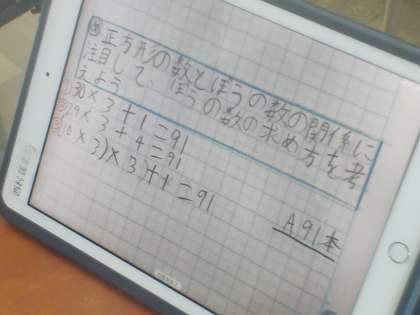 正方形の数とぼうの数の関係に
注目して、ぼうの数の求め方を考
えよう
①30×3+1=91
②29×3+4=91
③(10×3)×3+1=91
A 91本